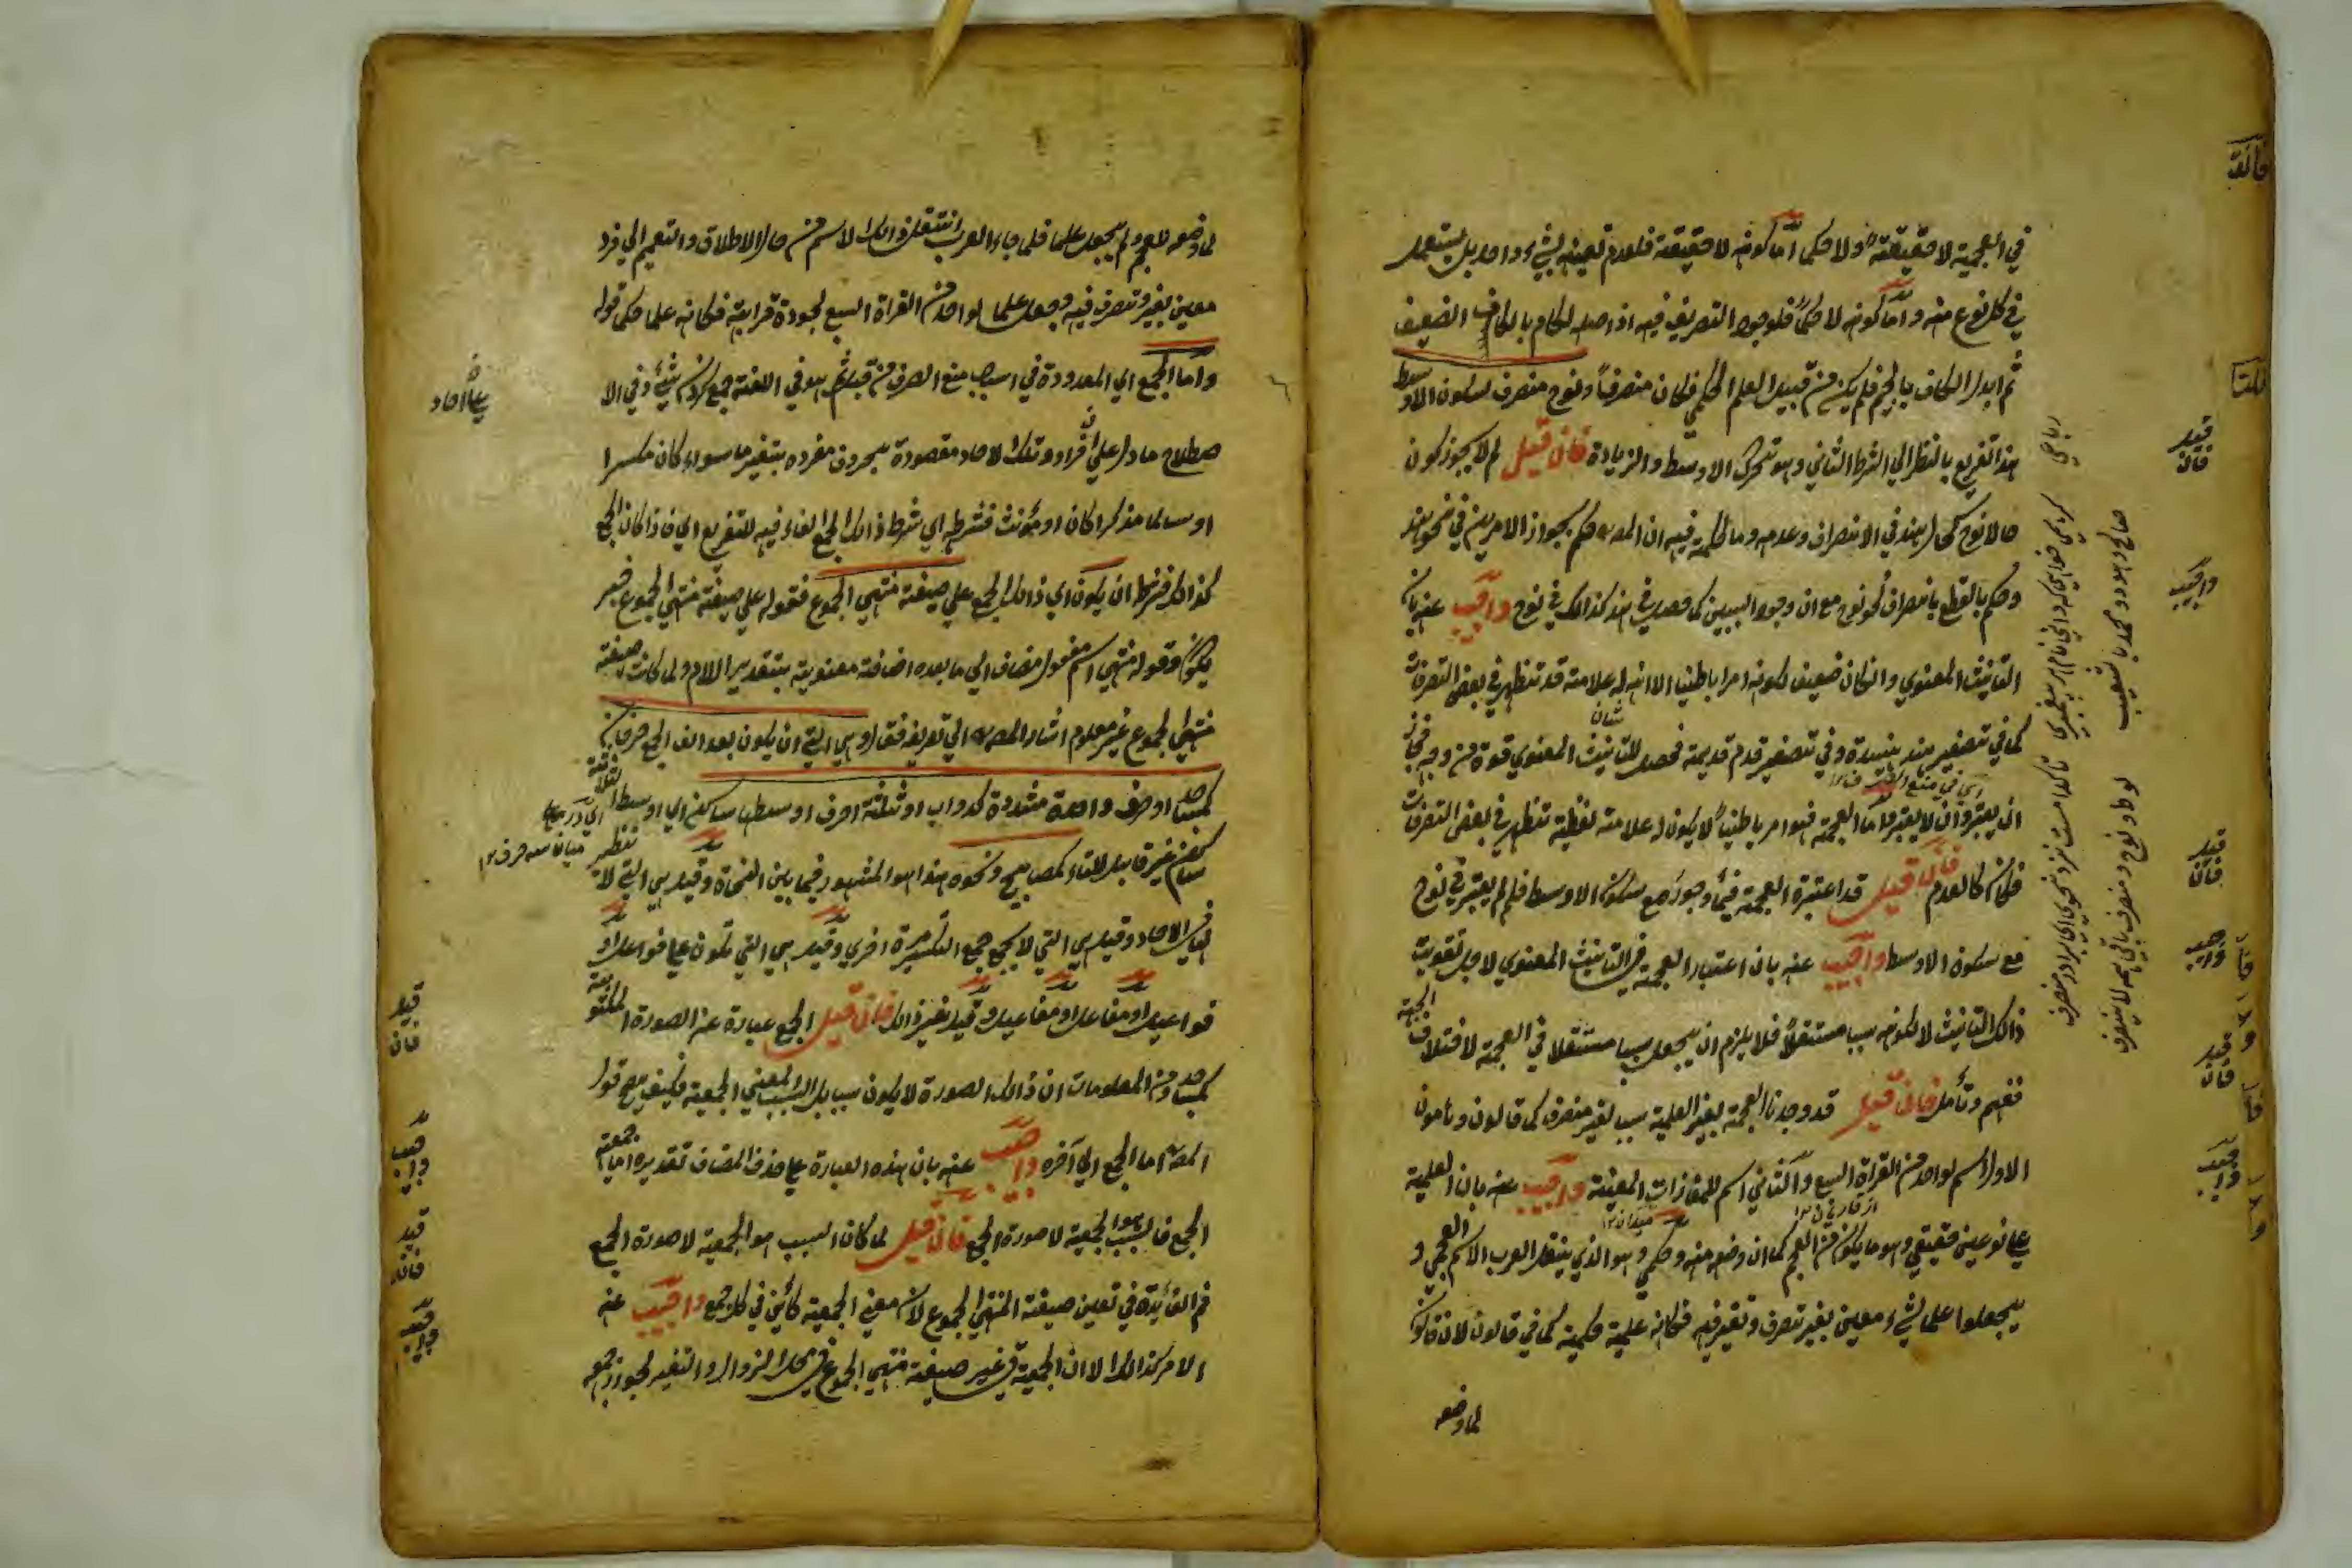 في العجمية لا حقيقة ولا حكما اما كونه لا حقيقة فلعدم تعينه لشيء واحد بل يستعمل
في كل نوع منه واما كونه لا حكما فلوجود التصريف فيه اذ اصله لكام بالكاف الضعيف
ثم ابدل الكاف بالجيم فلم يكن من قبيل العلم الحكمي فكان منصرفا ونوح منصرف لسكون الاوسط
هذا تفريع بالنظر الي الشرط الثاني وهو تحرك الاوسط والزيادة فان قيل لم لا يجوز كون
حالا نوح كحال هند في الانصراف وعدمه وما الحكمة فيه ان المصه حكم بجواز الامرين في نحو هند
وحكم بالقطع بانصراف نحو نوح مع ان وجود السببين كما حصل في هند كذالك في نوح واجيب عنه بان
التانيث المعنوي وان كان ضعيف لكونه امرا باطنيا الا انه له علامة قد تظهر في بعض التصرفات
كما في تصغير هند هنيدة وفي تصغير قدم قديمة فحصل للتانيث المعنوي قوة من وجه فجاز
ان يعتبر وان لا يعتبر واما العجمة فهو امر باطنيا لا يكون له علامة لفظية تظهر في بعض التصرفات
فكان كالعدم فان قيل قد اعتبرة العجمة في ماه وجور مع سكون الاوسط فلم لم يعتبر في نوح
مع سكون الاوسط واجيب عنه بان اعتبار العجمة في التانيث المعنوي لاجل تقوية
ذالك التانيث لا لكونه سببا مستقلا فلا يلزم ان يجعل سببا مستقلا في العجمة لاختلاف الجهة
ففهم وتأمل فان قيل قد وجدنا العجمة بغير العلمية سبب لغير منصرف كما قالون و
الاول اسم لواحد من القراة السبع والثاني اسم للمفازات المعينة واجيب عنه بان العلمية
علي نوعين حقيقي وهو ما يكون في العجم كما ان وضعه منه وحكمي وهو الذي ينتقل العرب الاسم العجمي و
يجعلوا علما لشيء معين بغير تصرف وتغير فيه فكانه علمية حكمية كما في قالون لان قالون
لما وضعه
صالح وهود و محمد با شعيب
لوط و نوح و منصرف باقي همه لا ينصرف
فان قيل
واجيب
فان قيل
واجيب
فان قيل
واجيب
لما وضعه للعجم ولم يجعل علما فلما جاء العرب انتقل ذالك الاسم من حال الاطلاق والتعميم الي فرد
معين بغير تصرف فيه وجعل علما لواحد من القراة السبع لجودة قراءته فكانه علما حكما قوله
واما الجمع اي المعدودة في اسباب منع الصرف من قبيل هو في اللغة جمع كردن شيء وفي الا
صطلاح ما دل علي افراد وتلك الاحاد مقصودة بحروف مفرده بتغير ما سواء كان مكسرا
علي احاد
او سالما مذكرا كان او مؤنث فشرطه اي شرط ذالك الجمع الفاء فيه للتفريع اي فاذا كان الجمع
كذالك فشرط ان يكون اي ذالك الجمع علي صيغة منتهي الجموع فقوله علي صيغة منتهي الجموع خبر
يكون وقوله منتهي اسم مفعول مضاف الي ما بعده اضافة معنوية بتقدير اللام ولما كانت صيغة
منتهي الجموع غير معلوم اشار المصه الي تعريفه فقال وهي التي ان يكون بعد الف الجمع حرفان
كمساجد او حرف واحدة مشددة كدواب او ثلثة احرف اوسطها ساكن اي اوسط الثلاثة
ساكن غير قابل للتاء كمصابيح ونحوه هذا هو المشهور فيما بين النحاة وقيل هي التي لا نظير
لها في الاحاد وقيل هي التي لا يجمع جمع التكسير مرة اخري وقيل هي التي تكون علي فواعل او
فواعيل او مفاعل او مفاعيل وقيل بغير ذالك فان قيل الجمع عبارة عن الصورة المكتوبة
كمساجد ومن المعلومات ان ذالك الصورة لا يكون سببا بل السبب المعني الجمعية فكيف يصح قول
المصه اما الجمع الي آخره واجيب عنه بان هذه العبارة علي حذف المضاف تقديره اما جمعية
الجمع فالسبب هو الجمعية لا صورة الجمع فان قيل لما كان السبب هو الجمعية لا صورة الجمع
فم الفائدة في تعين صيغة المنتهي الجموع لان معني الجمعية كائن في كل جمع واجيب عنه
الامر كذالك الا ان الجمعية في غير صيغة منتهي الجموع في محل الزوال والتغير لجواز جمعه
فان قيل
واجيب
فان قيل
واجيب